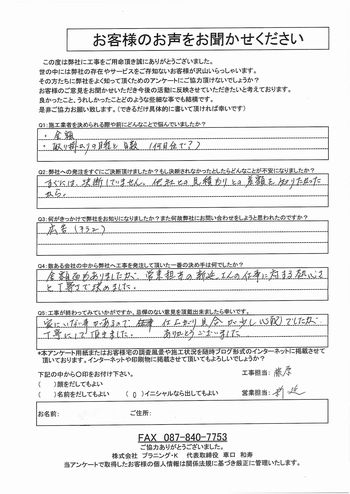 お客様のお声をお聞かせください
この度は弊社に工事をご用命頂き誠にありがとうございました。
世の中には弊社の存在やサービスをご存知ないお客様が沢山いらっしゃいます。
その方たちに弊社をよく知って頂くためのアンケートにご協力頂けないでしょうか?
お客様のご意見をお聞かせいただき今後の活動に反映させていただきたいと考えております。
良かったこと、うれしかったことどのような些細な事でも結構です。
是非ご協力お願い致します。(できるだけ具体的に書いて頂ければ幸いです)
Q1:施工業者を決められる際や前にどんなことで悩んでいましたか?
・金額
・取り掛かりの日程と日数(何日位で?)
Q2:弊社への発注をすぐにご決断頂けましたか?もし決断されなかったとしたらどんなことが不安になりましたか?
すぐには、決断していません。他社との見積りとの差額を知りたかった
から。
Q3:何がきっかけで弊社をお知りになりましたか?また何故弊社にお問い合わせをしようと思われたのですか?
広告(チラシ)
Q4:数ある会社の中から弊社へ工事を発注して頂いた一番の決め手は何でしたか?
金額面もありましたが、営業担当の新延さんの仕事に対する熱心さ
と丁寧さで決めました。
Q5:工事が終わってみていかがですか、忌憚のない意見を頂戴出来ましたら幸いです。
家にいない事があるので、仕上がり具合が少し心配でしたが、
丁寧にして頂きました。ありがとうございました
*本アンケート用紙またはお客様宅の調査風景や施工状況を随時ブログ形式のインターネットに掲載させて
頂いております。インターネットや印刷物に掲載させて頂いてもよろしいでしょうか?
下記の中から○印をお付け下さい 工事担当: 藤原
( )顔をだしてもよい
( )名前をだしてもよい (○)イニシャルなら出してもよい 営業担当: 新延
お名前: ご住所:
FAX 087-840-7753
ご協力ありがとうございました。
株式会社 プラニング・K 代表取締役 車口 和寿
当アンケートで取得したお客様の個人情報は関係法規に基づき厳正に管理いたします。